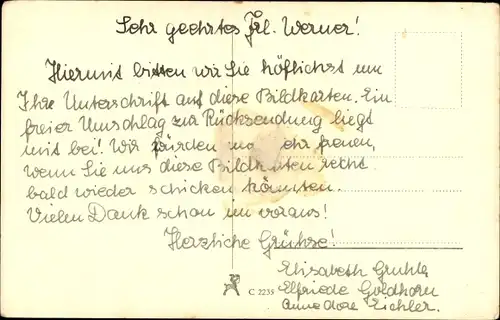 Sehr geehrtes Frl. Werner!
Hiermit bitten wir Sie höflichst um
Ihre Unterschrift auf diese Bildkarten. Ein
freier Umschlag zur Rücksendung liegt
mit bei! Wir würden uns ehr freuen,
wenn Sie uns diese Bildkarten recht
bald wieder schicken könnten.
Vielen Dank schon im voraus!
Herzliche Grühse!
Elisabeth
Elfriede Goldhorn
Annedore Eichler.
C 2235